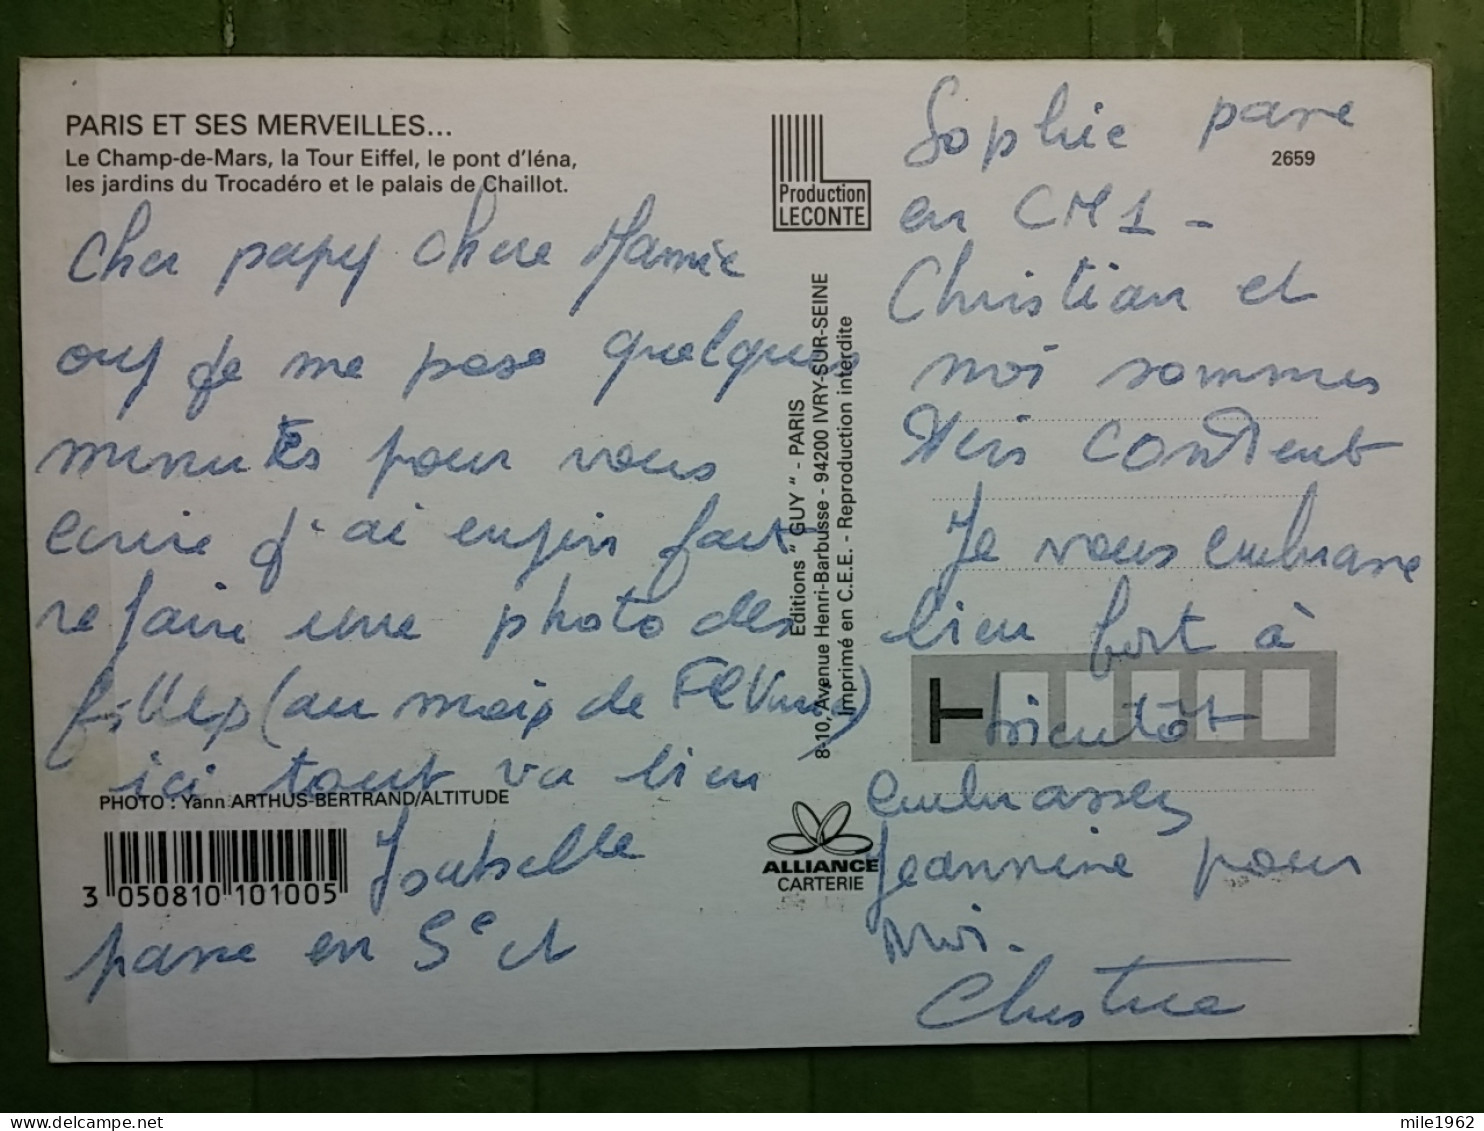 PARIS ET SES MERVEILLES...
Le Champ-de-Mars, la Tour Eiffel, le pont d'Iéna,
les jardins du Trocadéro et le palais de Chaillot.
Cher papy chere Mamie
ouf je me pose quelques
minutes pour vous
ecrire j'ai enfin fait
refaire une photo des
filles (au mois de Fevrier)
ici tout va bien
PHOTO : Yann ARTHUS-BERTRAND/ALTITUDE
3 050810 101005
Isabelle
passe en 5e et
Production
LECONTE
Editions " GUY " - PARIS
8-10, Avenue Henri-Barbusse - 94200 IVRY-SUR-SEINE
Imprimé en C.E.E. - Reproduction interdite
ALLIANCE
CARTERIE
2659
Sophie passe
en CM1 -
Christian et
moi sommes
très content
Je vous embrasse
bien fort à
bientôt
embrassez
Jeannine pour
moi.
Christine
mile1962